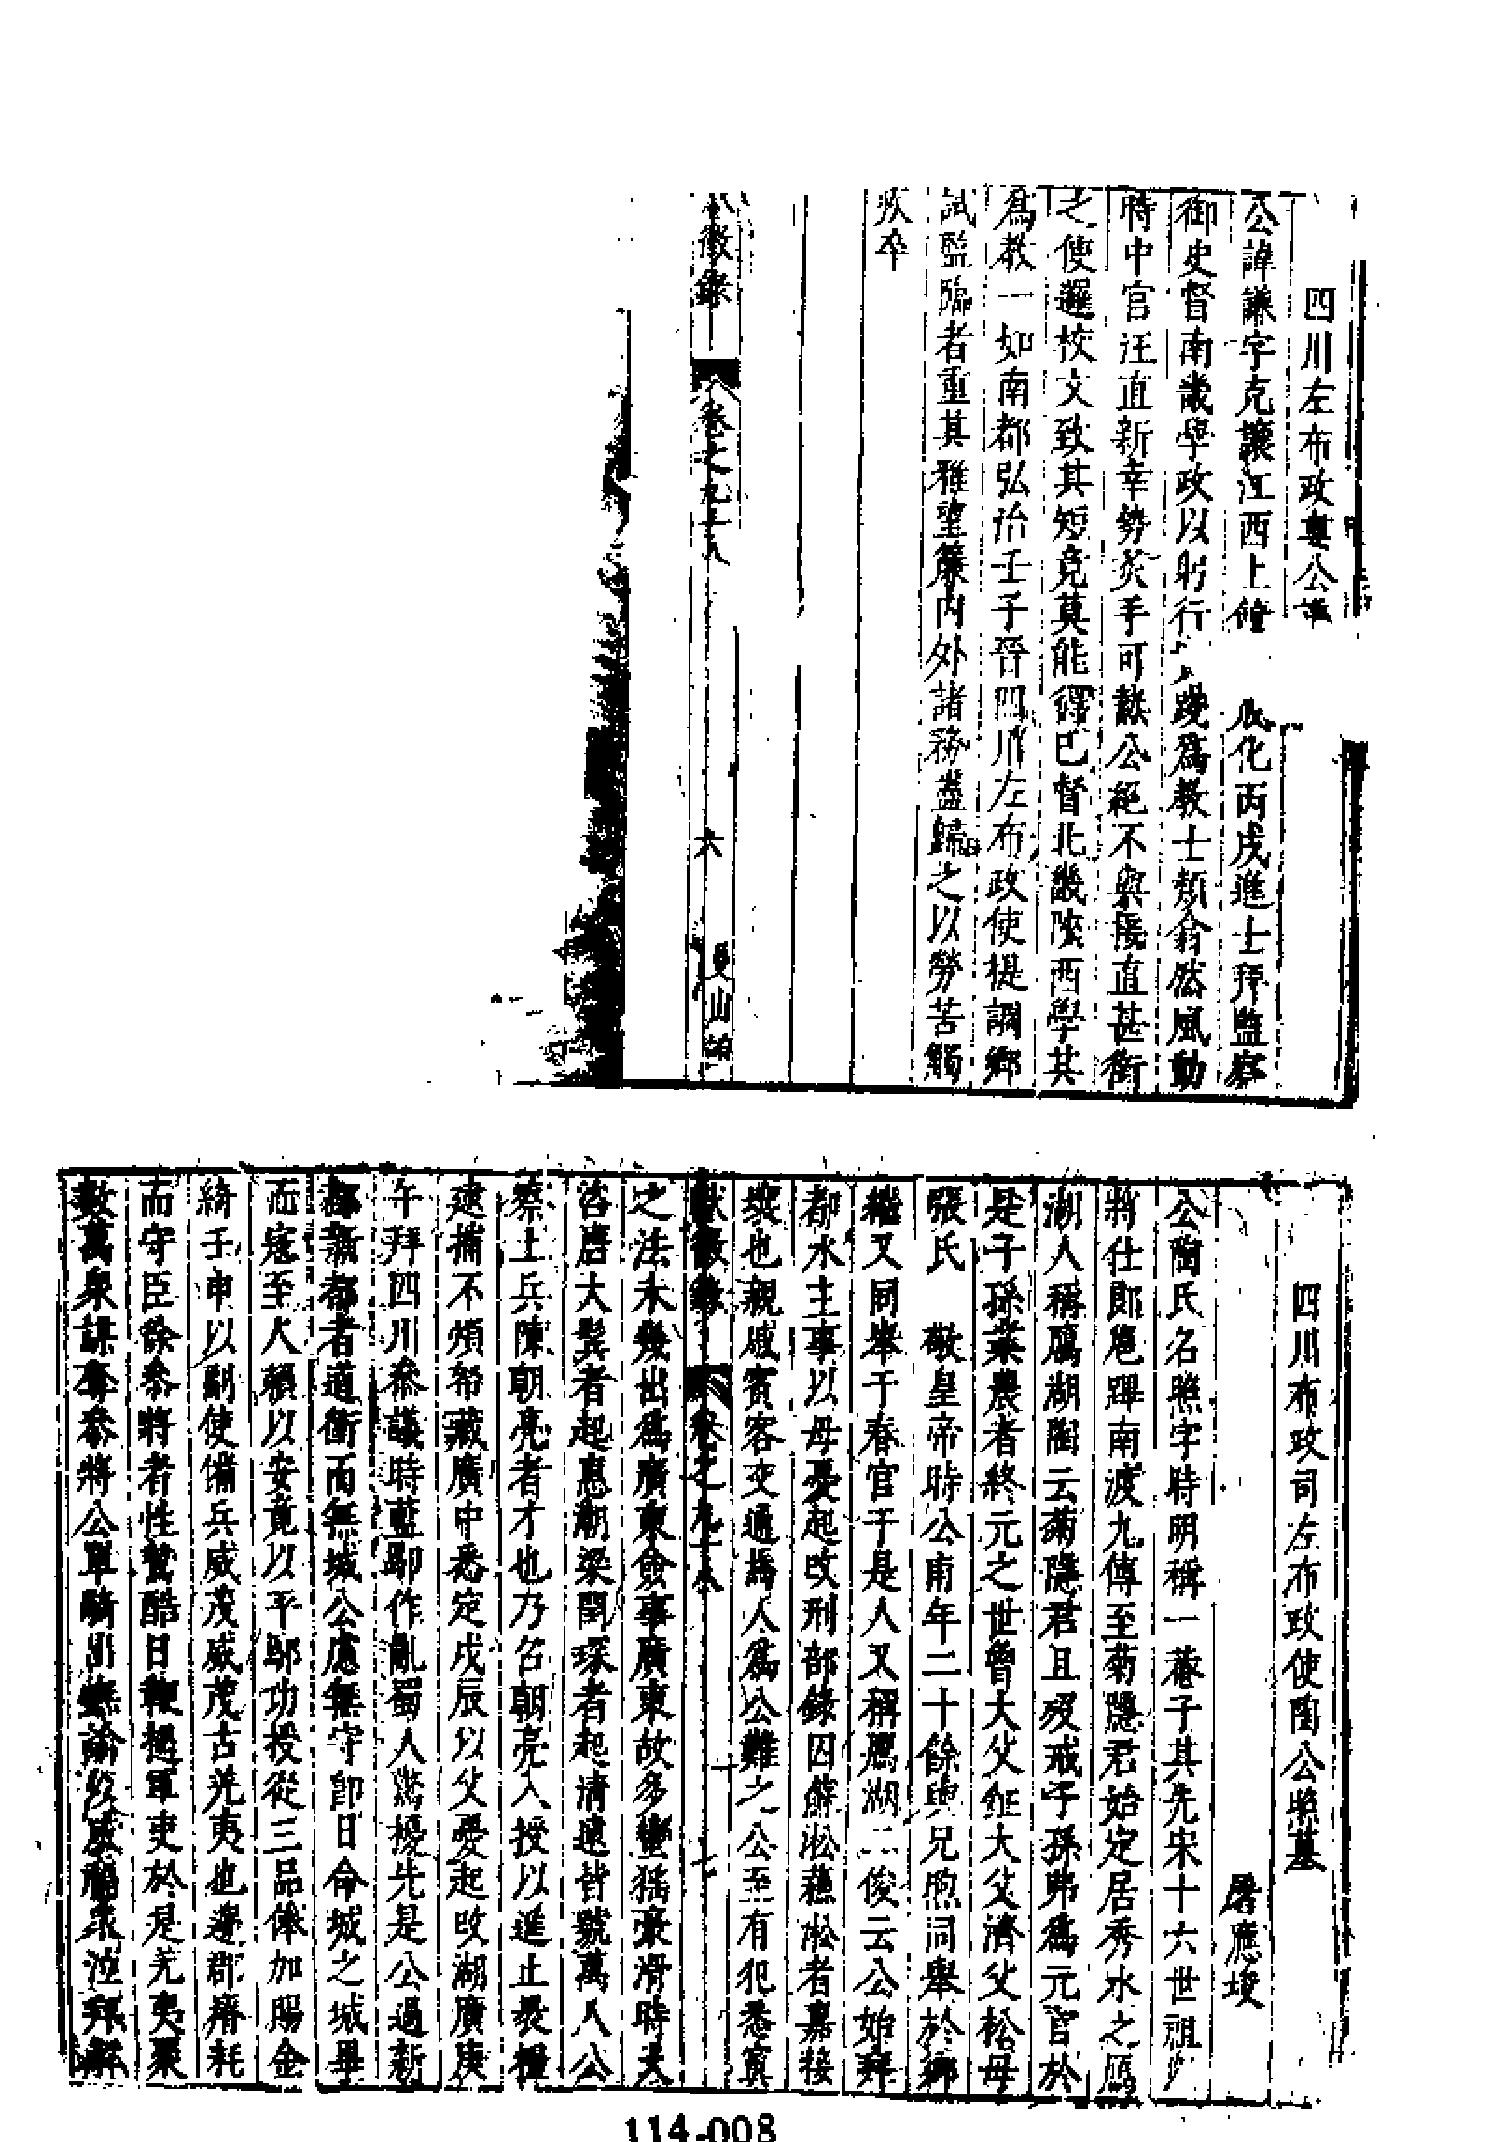 四川左布政婁公謙
公諱謙字克讓江西上饒 成化丙戌進士拜監察
御史督南畿學政以躬行 踐爲教士類翕然風動
時中官汪直新幸勢炎手可熱公絕不與接直甚銜
之使邏校文致其短竟莫能得已督北畿陝西學其
爲教一如南都弘治壬子晉四川左布政使提調鄉
試監臨者重其雅望簾內外諸務盡歸之以勞苦觸
疾卒
徵錄 卷之九十八 六 曼山館
四川布政司左布政使陶公照墓
屠應埈
公陶氏名照字時明稱一菴子其先宋十六世祖
將仕郎 蹕南渡九傳至菊隱君始定居秀水之鴈
湖人稱鴈湖陶云菊隱君且歿戒子孫弗爲元官於
是子孫業農者終元之世曾大父鉦大父濟父松母
張氏 敬皇帝時公甫年二十餘與兄煦同舉於鄉
繼又同舉于春官于是人又稱鴈湖二俊云公始拜
都水主事以母憂起改刑部錄囚蘇松蘇松者嘉接
壤也親戚賓客交通爲人爲公難之公至有犯悉寘
獻徵錄 卷之九十八 七
之法未幾出爲廣東僉事廣東故多蠻猺豪滑時大
咨唐大髦者起惠潮梁閏琛者起清遠皆號萬人公
察上兵陳朝亮者才也乃召朝亮入授以進止畏權
逮捕不煩帑藏廣中悉定戊辰以父憂起改湖廣庚
午拜四川叅議時藍鄢作亂蜀人驚擾先是公過新
都新都者道衝而無城公慮無守卽日令城之城畢
而寇至大賴以安竟以平鄢功授從三品俸加賜金
綺壬申以副使備兵威茂威茂古羌夷也邊郡瘠耗
而守臣餘叅將者性鷙酷日鞭撻軍吏於是羌夷聚
數萬衆謀奪叅將公單騎出撫諭以威福衆泣拜解
114-008